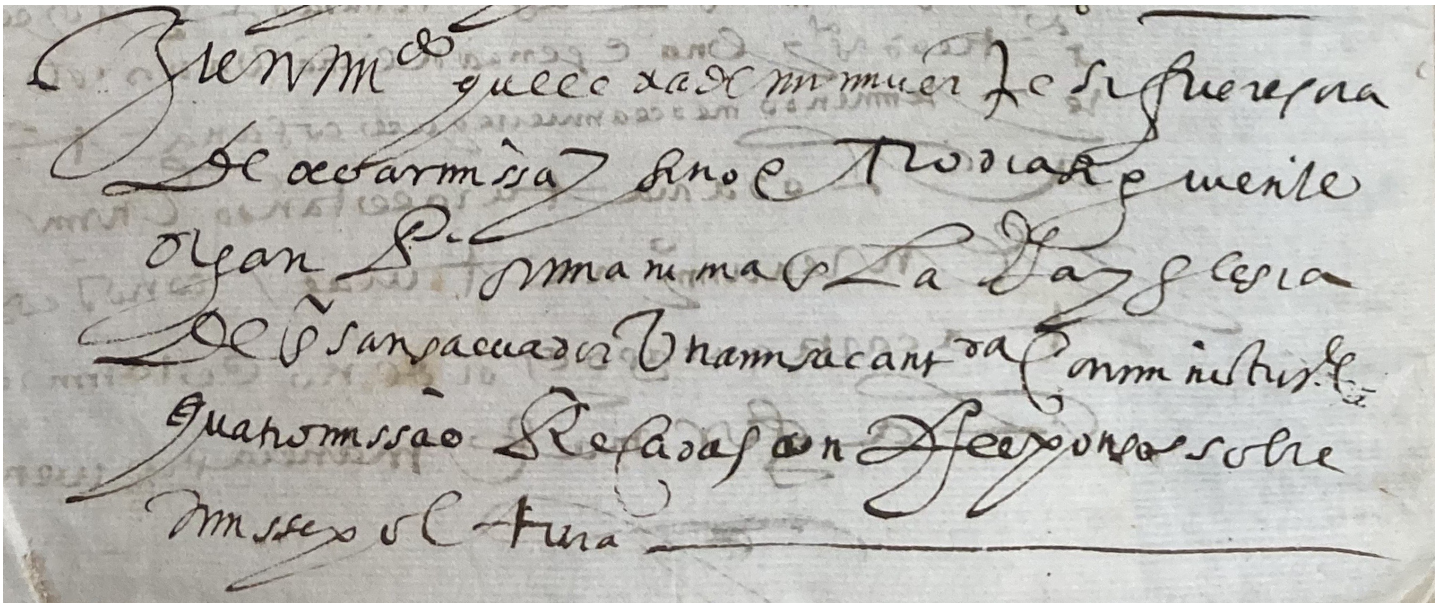 Yten m^do que el dia de mi muerte si fuere ora
de desir missa y sino otro dia siguiente
digan Pr mi anima en La Dha yglesia
De s san saluador Una missa cantda Con ministros e
quatro missas Reçadas con Responsos sobre
mi sepoltura